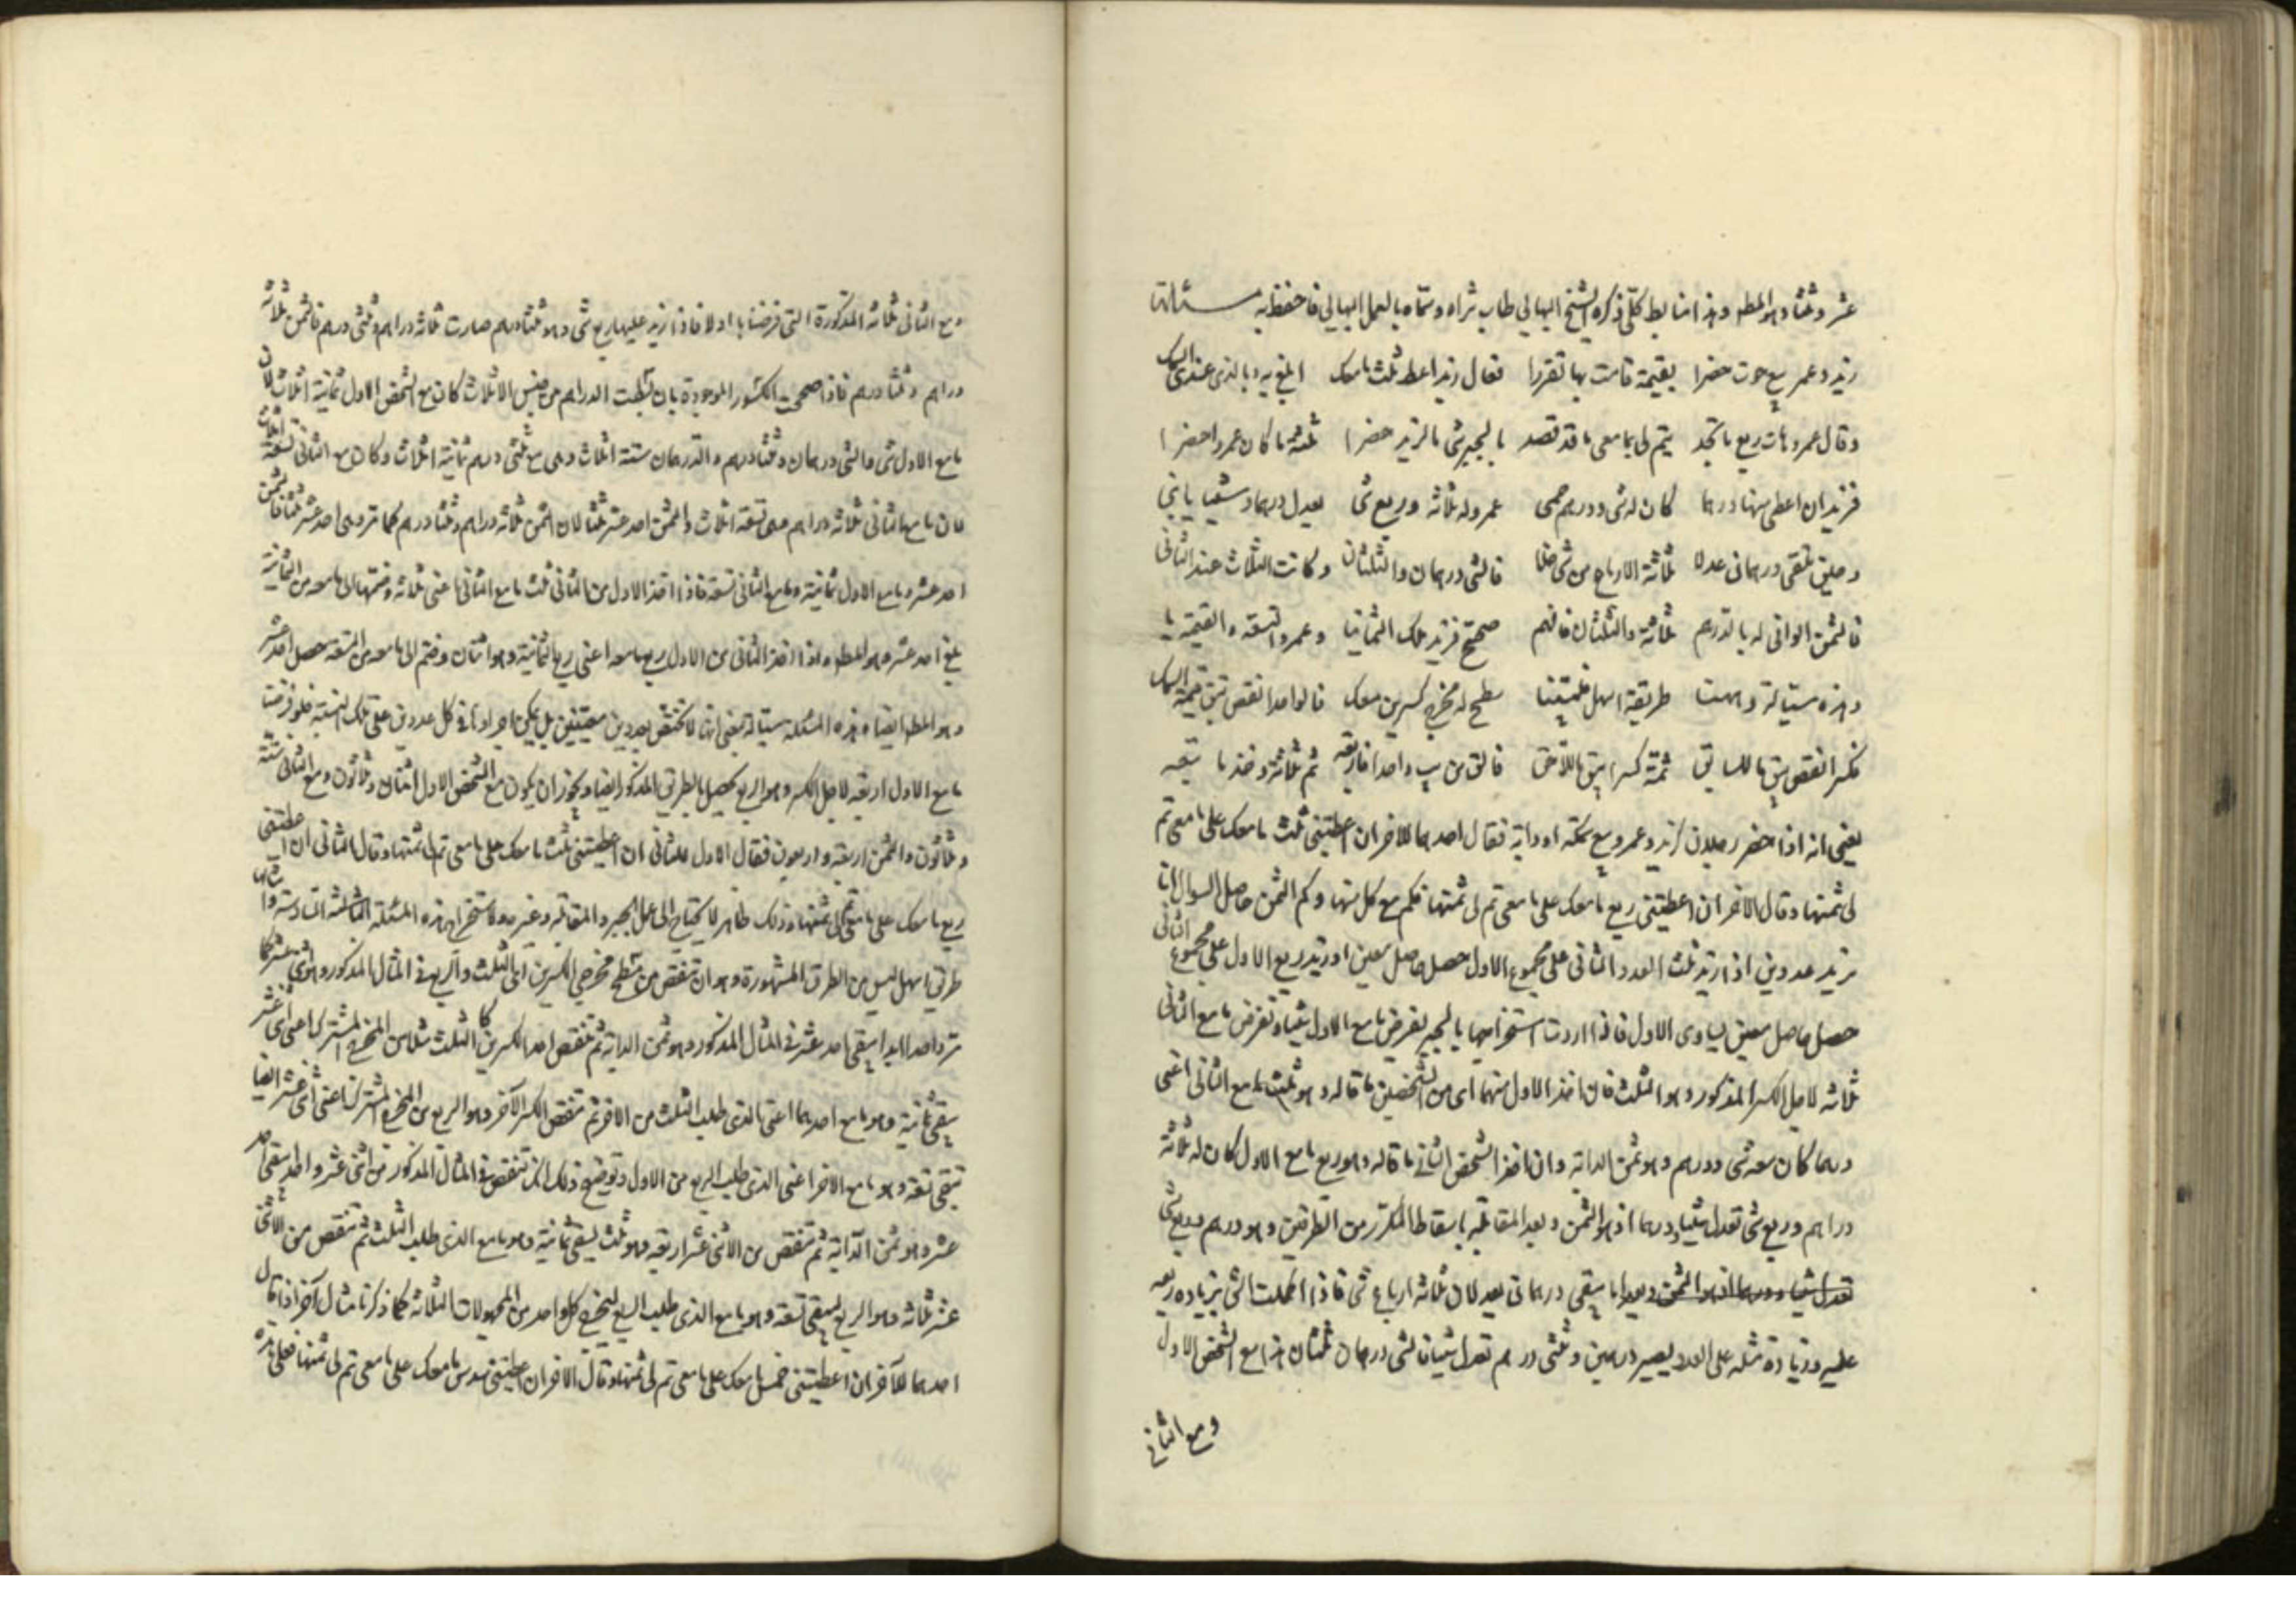 عشر وثلثا وهو المط وهذا ضابط كلي ذكره الشيخ البهائي طاب ثراه وسماه بالعمل البهائي فاحفظ به مسئلة
زيد وعمر بيع حوت حضرا بقيمة قامت بها تقررا فقال زيد اعط ثلث ما معك ابلغ به وبالذي عندي السمك
وقال عمرو هات ربع ما تجد يتم لي بما معي ما قد قصد بالجبر شئ ما لزيد حضرا ثلثة ما كان عمرو احضرا
فزيد ان اعطي منها درهما كان له شئ ودرهم عمرو له ثلاثة وربع شئ يعدل درهما وشيئا
وحين تلقى درهماني عدلا ثلاثة الارباع من شئ فالشئ درهمان والثلثان وكانت الثلاث عند الثاني
فالثمن الوافي له بالدرهم ثلاثة والثلثان فافهم صحح فزيد ملك الثمانيا وعمرو التسعة والقيمة يا
وهذه سيالة وههنا طريقة اسهل سطح له مخرج كسرين معك فالواحد انقص تبق قيمة السمك
فكسرا انقص يبق ما للسابق ثمة كسرا يبق ما للاحق فالق من يب واحدا فاربعة ثم ثلاثة وخذ ما
يعني انه اذا حضر رجلان كزيد وعمرو بيع سمكة او دابة فقال احدهما للاخر ان اعطيتني ثلث ما معك على ما معي تم
لي ثمنها وقال الاخر ان اعطيتني ربع ما معك على ما معي تم لي ثمنها فكم مع كل منهما وكم الثمن حاصل السوال انا
نريد عددين اذا زيد ثلث العدد الثاني على مجموع الاول حصل حاصل معين او زيد ربع الاول على مجموع الثاني
حصل حاصل معين يساوى الاول فاذا اردت استخراجهما بالجبر نفرض ما مع الاول شيئا ونفرض ما مع الثاني
ثلاثة لاجل الكسر المذكور وهو الثلث فان اخذ الاول منهما اى من الشخصين ما قاله وهو ثلث ما مع الثاني اعنى
درهما كان معه شئ ودرهم وهو ثمن الدابة وان اخذ الشخص الثاني ما قاله وهو ربع ما مع الاول كان له ثلاثة
دراهم وربع شئ تعدل شيئا ودرهما اذ هو الثمن وبعد المقابلة باسقاط المكرر من الطرفين وهو درهم وربع شئ
تعدل شيئا ودرهما اذ هو الثمن وبعد ما يبقى درهماني يعدلان ثلاثة ارباع شئ فاذا اكملت الشئ بزيادة ربعه
عليه وزيادة مثله على العدد يصير درهمين وثلثى درهم تعدل شيئا فالشئ درهمان وثلثان هذا مع الشخص الاول
ومع الثاني
ومع الثاني ثلاثة المذكورة التى فرضناها اولا فاذا زيد عليها ربع شئ وهو ثلثا درهم صارت ثلاثة دراهم وثلثى درهم فالثمن ثلاثة
دراهم وثلثا درهم فاذا صححت الكسور الموجودة بان بسطت الدراهم من جنس الاثلاث كان مع الشخص الاول ثمانية اثلاث لان
ما مع الاول شئ والشئ درهمان وثلثا درهم والدرهمان ستة اثلاث وهى مع ثلثى درهم ثمانية اثلاث وكان مع الثاني تسعة اثلاث
لان ما مع الثاني ثلاثة دراهم وهى تسعة اثلاث والثمن احد عشر ثلثا لان الثمن ثلاثة دراهم وثلثا درهم كما مر وهى احد عشر ثلثا فالثمن
احد عشر وما مع الاول ثمانية وما مع الثاني تسعة فاذا اخذ الاول من الثاني ثلث ما مع الثاني اعنى ثلاثة وضمها الى ما معه من الثمانية
بلغ احد عشر وهو المط واذا اخذ الثاني من الاول ربع ما معه اعنى ربع الثمانية وهو اثنان وضم الى ما معه من التسعة حصل احد عشر
وهو المط ايضا وهذه المسئلة سيالة يعنى انها لا تختص بعددين معينين بل يمكن اجراؤها في كل عددين على تلك النسبة فلو فرضت
ما مع الاول اربعة لاجل الكسر وهو الربع يحصل بالطريق المذكور ايضا ويجوز ان يكون مع الشخص الاول اثنان وثلاثون ومع الثاني ستة
وثلاثون والثمن اربعة واربعون فقال الاول للثاني ان اعطيتني ثلث ما معك على ما معي تم لي ثمنها وقال الثاني ان اعطيتني
ربع ما معك على ما معي تم لي ثمنها وذلك ظاهر لا يحتاج الى عمل الجبر والمقابلة وغيره ولاستخراج هذه المسئلة
طريق اسهل ليس من الطرق المشهورة وهو ان تنقص من مسطح مخرجى الكسرين اعنى الثلث والربع في المثال المذكور وهو اثنى عشر كما
مر واحدا ابدا يبقى احد عشر في المثال المذكور وهو ثمن الدابة ثم تنقص احد الكسرين كالثلث مثلا من المخرج المشترك اعنى اثنى عشر
يبقى ثمانية وهو ما مع احدهما اعنى الذى طلب الثلث من الاخر ثم تنقص الكسر الآخر وهو الربع من المخرج المشترك اعنى اثنى عشر ايضا
تبقى تسعة وهو ما مع الاخر اعنى الذى طلب الربع من الاول وتوضيح ذلك انك تنقص في المثال المذكور من اثنى عشر واحدا يبقى احد
عشر وهو ثمن الدابة ثم تنقص من الاثنى عشر اربعة وهو ثلث يبقى ثمانية وهو ما مع الذى طلب الثلث ثم تنقص من الاثنى
عشر ثلاثة وهو الربع يبقى تسعة وهو ما مع الذى طلب الربع ليخرج كل واحد من المجهولات الثلاثة كما ذكرنا مثال آخر اذا قال
احدهما للآخر ان اعطيتنى خمس ما معك على ما معي تم لي ثمنها وقال الاخر ان اعطيتنى سدس ما معك على ما معي تم لي ثمنها فعلى هذه